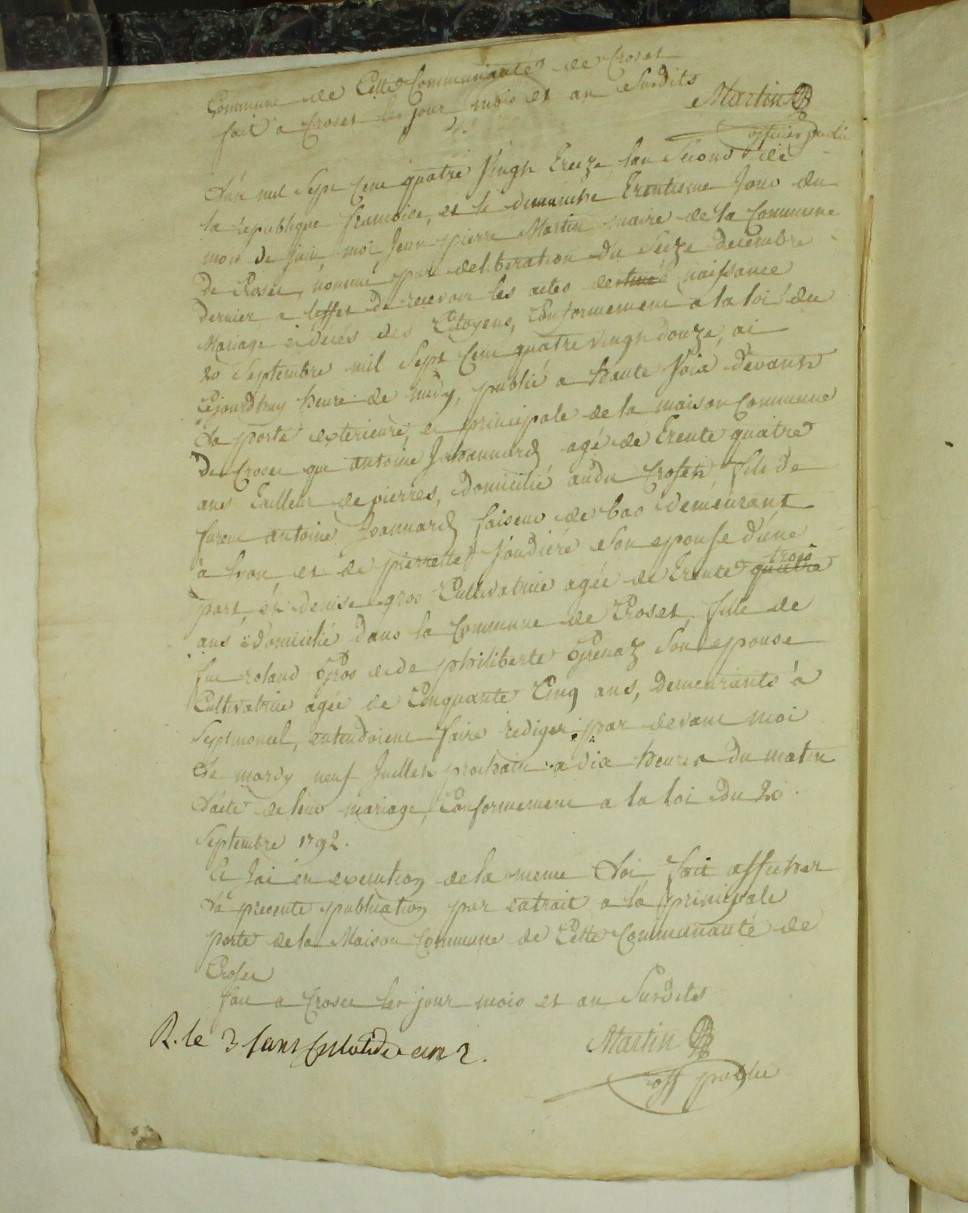 Commune de Cette Communauté de Croset
fait a Croset les jour mois et an Susdits
Martin
officier public
L'an mil Sept Cent quatre Vingt treize l'an Second de
la republique francoise, et le dimanche trentieme Jour du
mois de Juin, moi Jean pierre Martin maire de la Commune
De Croset, nommé par deliberation du Seize decembre
dernier a leffet de recevoir les actes de naissance
Mariage et décés des Citoyens, Conformement a la loi du
20 Septembre mil Sept Cent quatre vingt douze, ai
Cejourdhuy heure de midy, publié a haute Voix devant
La porte exterieure, et principale de la maison Commune
De Croset que antoine agé de trente quatre
ans tailleur de pierres, Domicilié audit Croset, fils de
antoine faiseur de bas demeurant
a et de pierrette Son epouse d'une
part, et denise gros Cultivatrice agée de trente quatre trois
ans Domiciliée dans la Commune de Croset, fille de
feu roland Gros et de philiberte Grenaz Son epouse
Cultivatrice agée de Cinquante Cinq ans, Demeurante a
Septmoncel, entendoient faire rediger par devant moi
Le mardy neuf Juillet prochain a dix heures du matin
L'acte de leur mariage, Conformement a la loi du 20
Septembre 1792.
Et J'ai en execution de la meme Loi fait afficher
La presente publication par extrait a la principale
porte de la Maison Commune de Cette Communauté de
Croset
fait a Croset les jour mois et an Susdits
R. le 3 Sans Culotide an 2.
Martin
off public